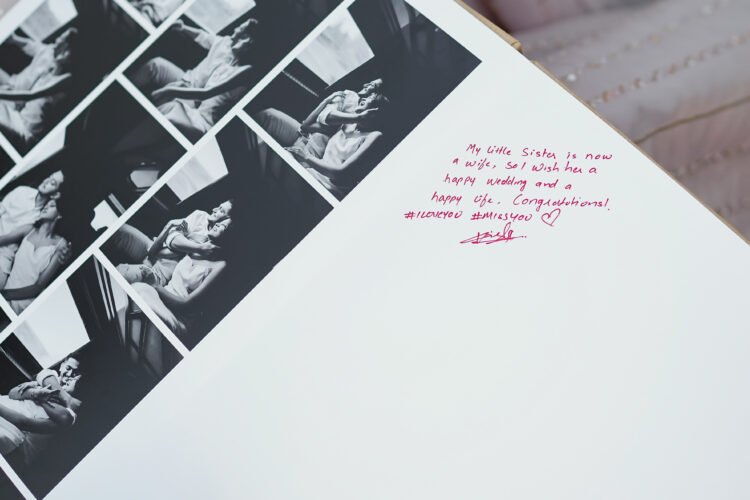 My little Sister is now
a wife, so I wish her a
happy wedding and a
happy life. Congratulations!
#ILOVEYOU #MISSYOU ♡